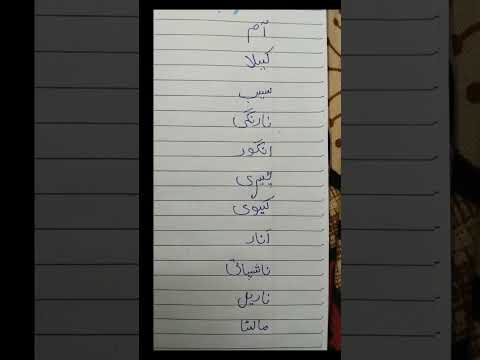 آم
کیلا
سیب
نارنگی
انگور
چیری
کیوی
انار
ناشپاتی
ناریل
مالٹا